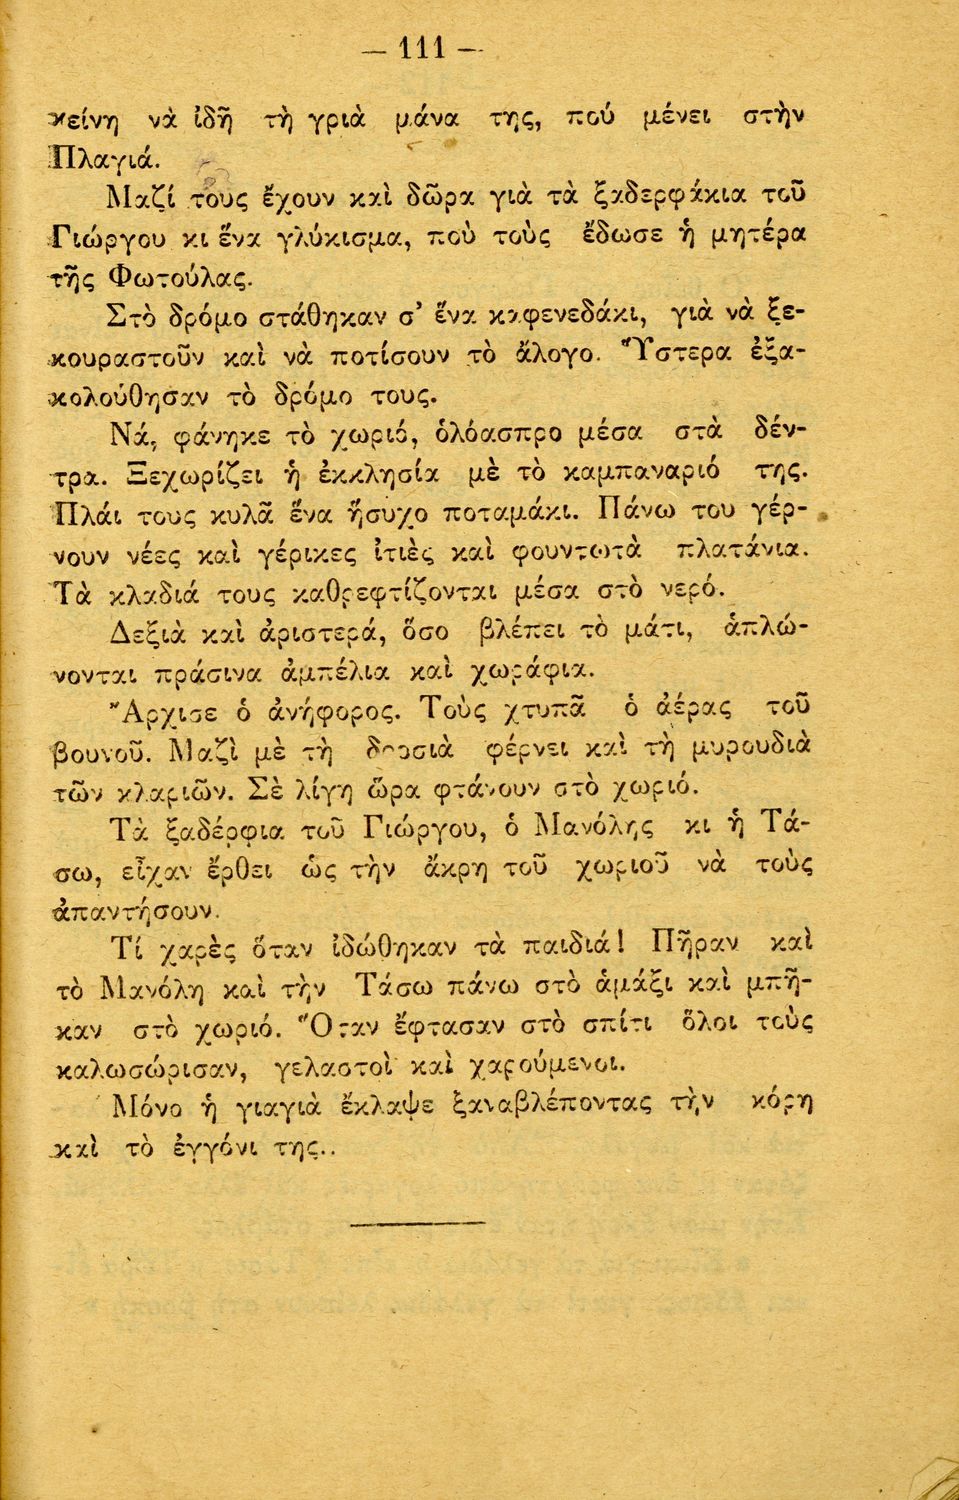 — 111 —
κείνη νὰ ἰδῇ τὴ γριὰ μάνα της, πού μένει στὴν
Πλαγιά.
Μαζί τους ἔχουν καὶ δῶρα γιὰ τὰ ξαδερφάκια τοῦ
Γιώργου κι ἕνα γλύκισμα, ποὺ τοὺς ἔδωσε ἡ μητέρα
τῆς Φωτούλας.
Στὸ δρόμο στάθηκαν σ’ ἕνα καφενεδάκι, γιὰ νὰ ξε-
κουραστοῦν καὶ νὰ ποτίσουν τὸ ἄλογο. Ὕστερα ἐξα-
κολούθησαν τὸ δρόμο τους.
Νά, φάνηκε τὸ χωριό, ὁλόασπρο μέσα στὰ δέν-
τρα. Ξεχωρίζει ἡ ἐκκλησία μὲ τὸ καμπαναριό της.
Πλάι τους κυλᾶ ἕνα ἥσυχο ποταμάκι. Πάνω του γέρ-
νουν νέες καὶ γέρικες ἰτιὲς καὶ φουντωτὰ πλατάνια.
Τὰ κλαδιά τους καθρεφτίζονται μέσα στὸ νερό.
Δεξιὰ καὶ ἀριστερά, ὅσο βλέπει τὸ μάτι, ἁπλώ-
νονται πράσινα ἀμπέλια καὶ χωράφια.
Ἄρχισε ὁ ἀνήφορος. Τοὺς χτυπᾶ ὁ ἀέρας τοῦ
βουνοῦ. Μαζὶ μὲ τὴ δροσιὰ φέρνει καὶ τὴ μυρουδιὰ
τῶν κλαριῶν. Σὲ λίγη ὥρα φτάνουν στὸ χωριό.
Τὰ ξαδέρφια τοῦ Γιώργου, ὁ Μανόλης κι ἡ Τά-
σω, εἶχαν ἔρθει ὡς τὴν ἄκρη τοῦ χωριοῦ νὰ τοὺς
ἀπαντήσουν.
Τί χαρὲς ὅταν ἰδώθηκαν τὰ παιδιά! Πῆραν καὶ
τὸ Μανόλη καὶ τὴν Τάσω πάνω στὸ ἁμάξι καὶ μπῆ-
καν στὸ χωριό. Ὅταν ἔφτασαν στὸ σπίτι ὅλοι τοὺς
καλωσώρισαν, γελαστοὶ καὶ χαρούμενοι.
Μόνο ἡ γιαγιὰ ἔκλαψε ξαναβλέποντας τὴν κόρη
καὶ τὸ ἐγγόνι της..